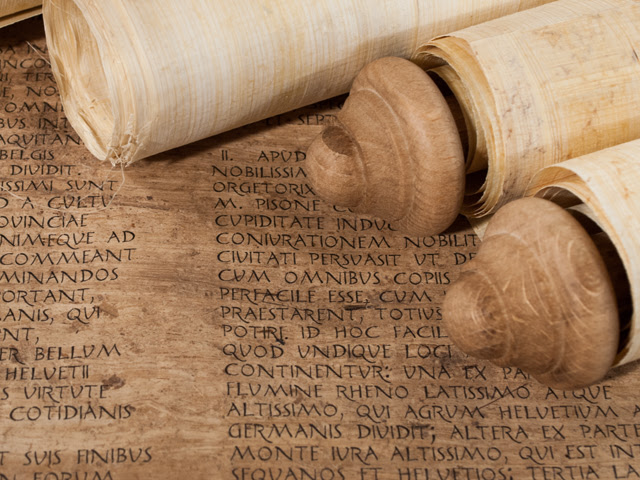 INI
TER
E, NO
OMN
BUS INT
AQUITAN
BELGIS
DIVIDIT.
ISSIMI SUNT
D A CULTU
OVINCIAE
NIMEQUE AD
COMMEANT
MINANDOS
PORTANT,
ANIS, QUI
NT,
ER BELLUM
HELVETII
S VIRTUTE
COTIDIANIS
T SUIS FINIBUS
N EORUM
SEP
II. APUD
NOBILISSIM
ORGETORIX
M. PISONE
CUPIDITATE INDUC
CONIURATIONEM NOBILIT
CIVITATI PERSUASIT UT DE
CUM OMNIBUS COPIIS
PERFACILE ESSE, CUM
PRAESTARENT, TOTIUS
POTIRE ID HOC FACIL
QUOD UNDIQUE LOCI
CONTINENTUR: UNA EX PAR
FLUMINE RHENO LATISSIMO ATQUE
ALTISSIMO, QUI AGRUM HELVETIUM A
GERMANIS DIVIDIT; ALTERA EX PARTE
MONTE IURA ALTISSIMO, QUI EST INT
SEQUANOS ET HELVETIOS; TERTIA LA